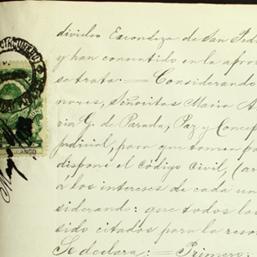 dividen Escondeza de San Fed
y han consentido en la apro
se trata: = Considerando
nores, Señoritas Maria A
via G. de Parada, Paz y Concep
judicial, para que toman pa
disponi el Código Civil, (ar
á los intereses de cada un
siderando: que todos los
sido citados para la reso
Se declara: = Primero: